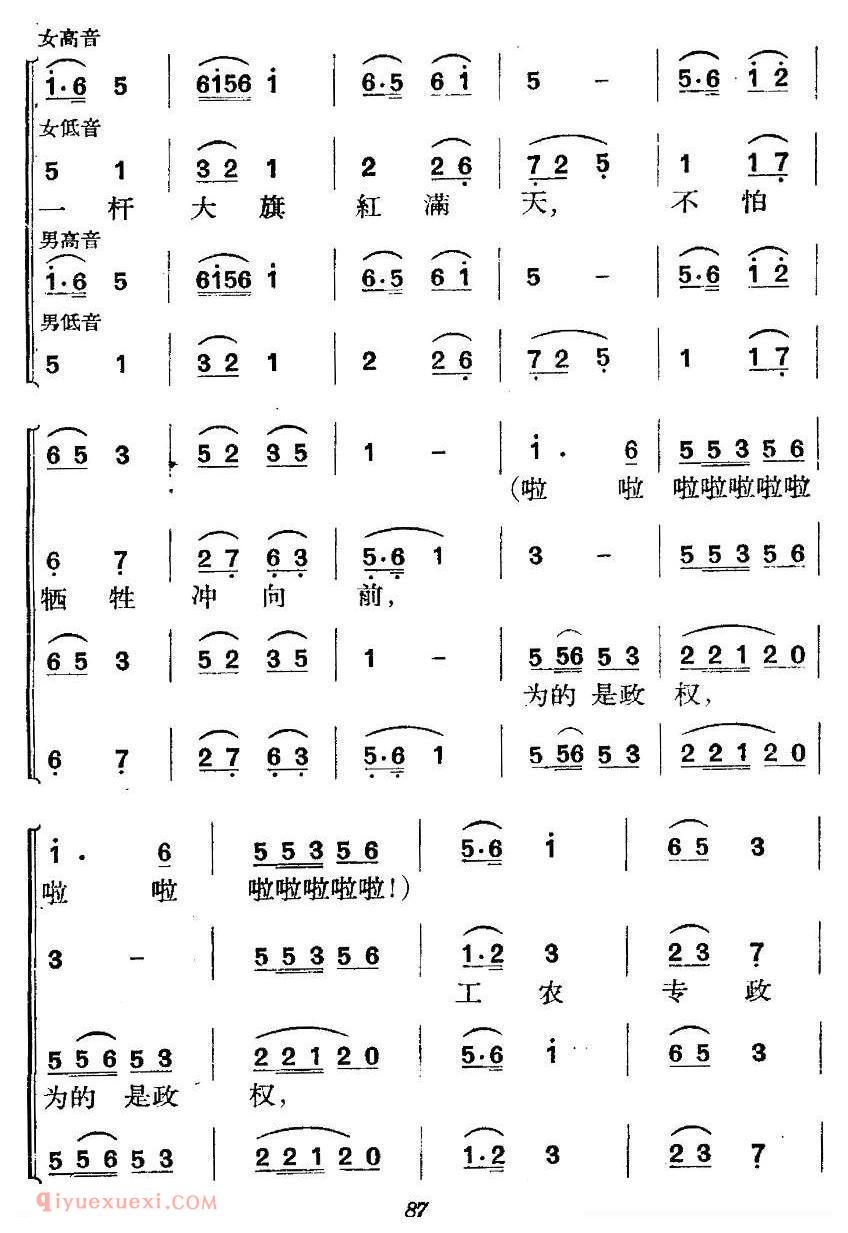 女高音
1·6 5 | 6156 1 | 6·5 6 1 | 5 – | 5·6 1 2 |
女低音
5 1 | 3 2 1 | 2 2 6 | 7 2 5 | 1 1 7 |
一 杆 大 旗 紅 滿 天, 不 怕
男高音
1·6 5 | 6156 1 | 6·5 6 1 | 5 – | 5·6 1 2 |
男低音
5 1 | 3 2 1 | 2 2 6 | 7 2 5 | 1 1 7 |
6 5 3 | 5 2 3 5 | 1 – | 1 · 6 | 5 5 3 5 6 |
(啦 啦 啦啦啦啦啦
6 7 | 2 7 6 3 | 5·6 1 | 3 – | 5 5 3 5 6 |
牺 牲 冲 向 前,
6 5 3 | 5 2 3 5 | 1 – | 5 56 5 3 | 2 2 1 2 0 |
为的 是政 权,
6 7 | 2 7 6 3 | 5·6 1 | 5 56 5 3 | 2 2 1 2 0 |
1 · 6 | 5 5 3 5 6 | 5·6 1 | 6 5 3 |
啦 啦 啦啦啦啦啦!)
3 – | 5 5 3 5 6 | 1·2 3 | 2 3 7 |
工 农 专 政
5 5 6 5 3 | 2 2 1 2 0 | 5·6 1 | 6 5 3 |
为的 是政 权,
5 5 6 5 3 | 2 2 1 2 0 | 1·2 3 | 2 3 7 |
qiyuexuexi.com
87